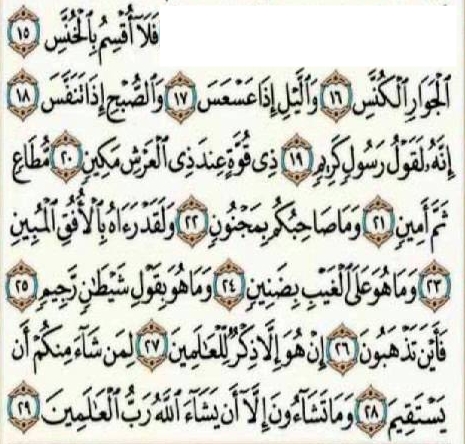 فَلَآ أُقۡسِمُ بِٱلۡخُنَّسِ ١٥
ٱلۡجَوَارِ ٱلۡكُنَّسِ ١٦ وَٱلَّيۡلِ إِذَا عَسۡعَسَ ١٧ وَٱلصُّبۡحِ إِذَا تَنَفَّسَ ١٨
إِنَّهُۥ لَقَوۡلُ رَسُولٖ كَرِيمٖ ١٩ ذِي قُوَّةٍ عِندَ ذِي ٱلۡعَرۡشِ مَكِينٖ ٢٠ مُّطَاعٖ
ثَمَّ أَمِينٖ ٢١ وَمَا صَاحِبُكُم بِمَجۡنُونٖ ٢٢ وَلَقَدۡ رَءَاهُ بِٱلۡأُفُقِ ٱلۡمُبِينِ
٢٣ وَمَا هُوَ عَلَى ٱلۡغَيۡبِ بِضَنِينٖ ٢٤ وَمَا هُوَ بِقَوۡلِ شَيۡطَٰنٖ رَّجِيمٖ ٢٥
فَأَيۡنَ تَذۡهَبُونَ ٢٦ إِنۡ هُوَ إِلَّا ذِكۡرٞ لِّلۡعَٰلَمِينَ ٢٧ لِمَن شَآءَ مِنكُمۡ أَن
يَسۡتَقِيمَ ٢٨ وَمَا تَشَآءُونَ إِلَّآ أَن يَشَآءَ ٱللَّهُ رَبُّ ٱلۡعَٰلَمِينَ ٢٩